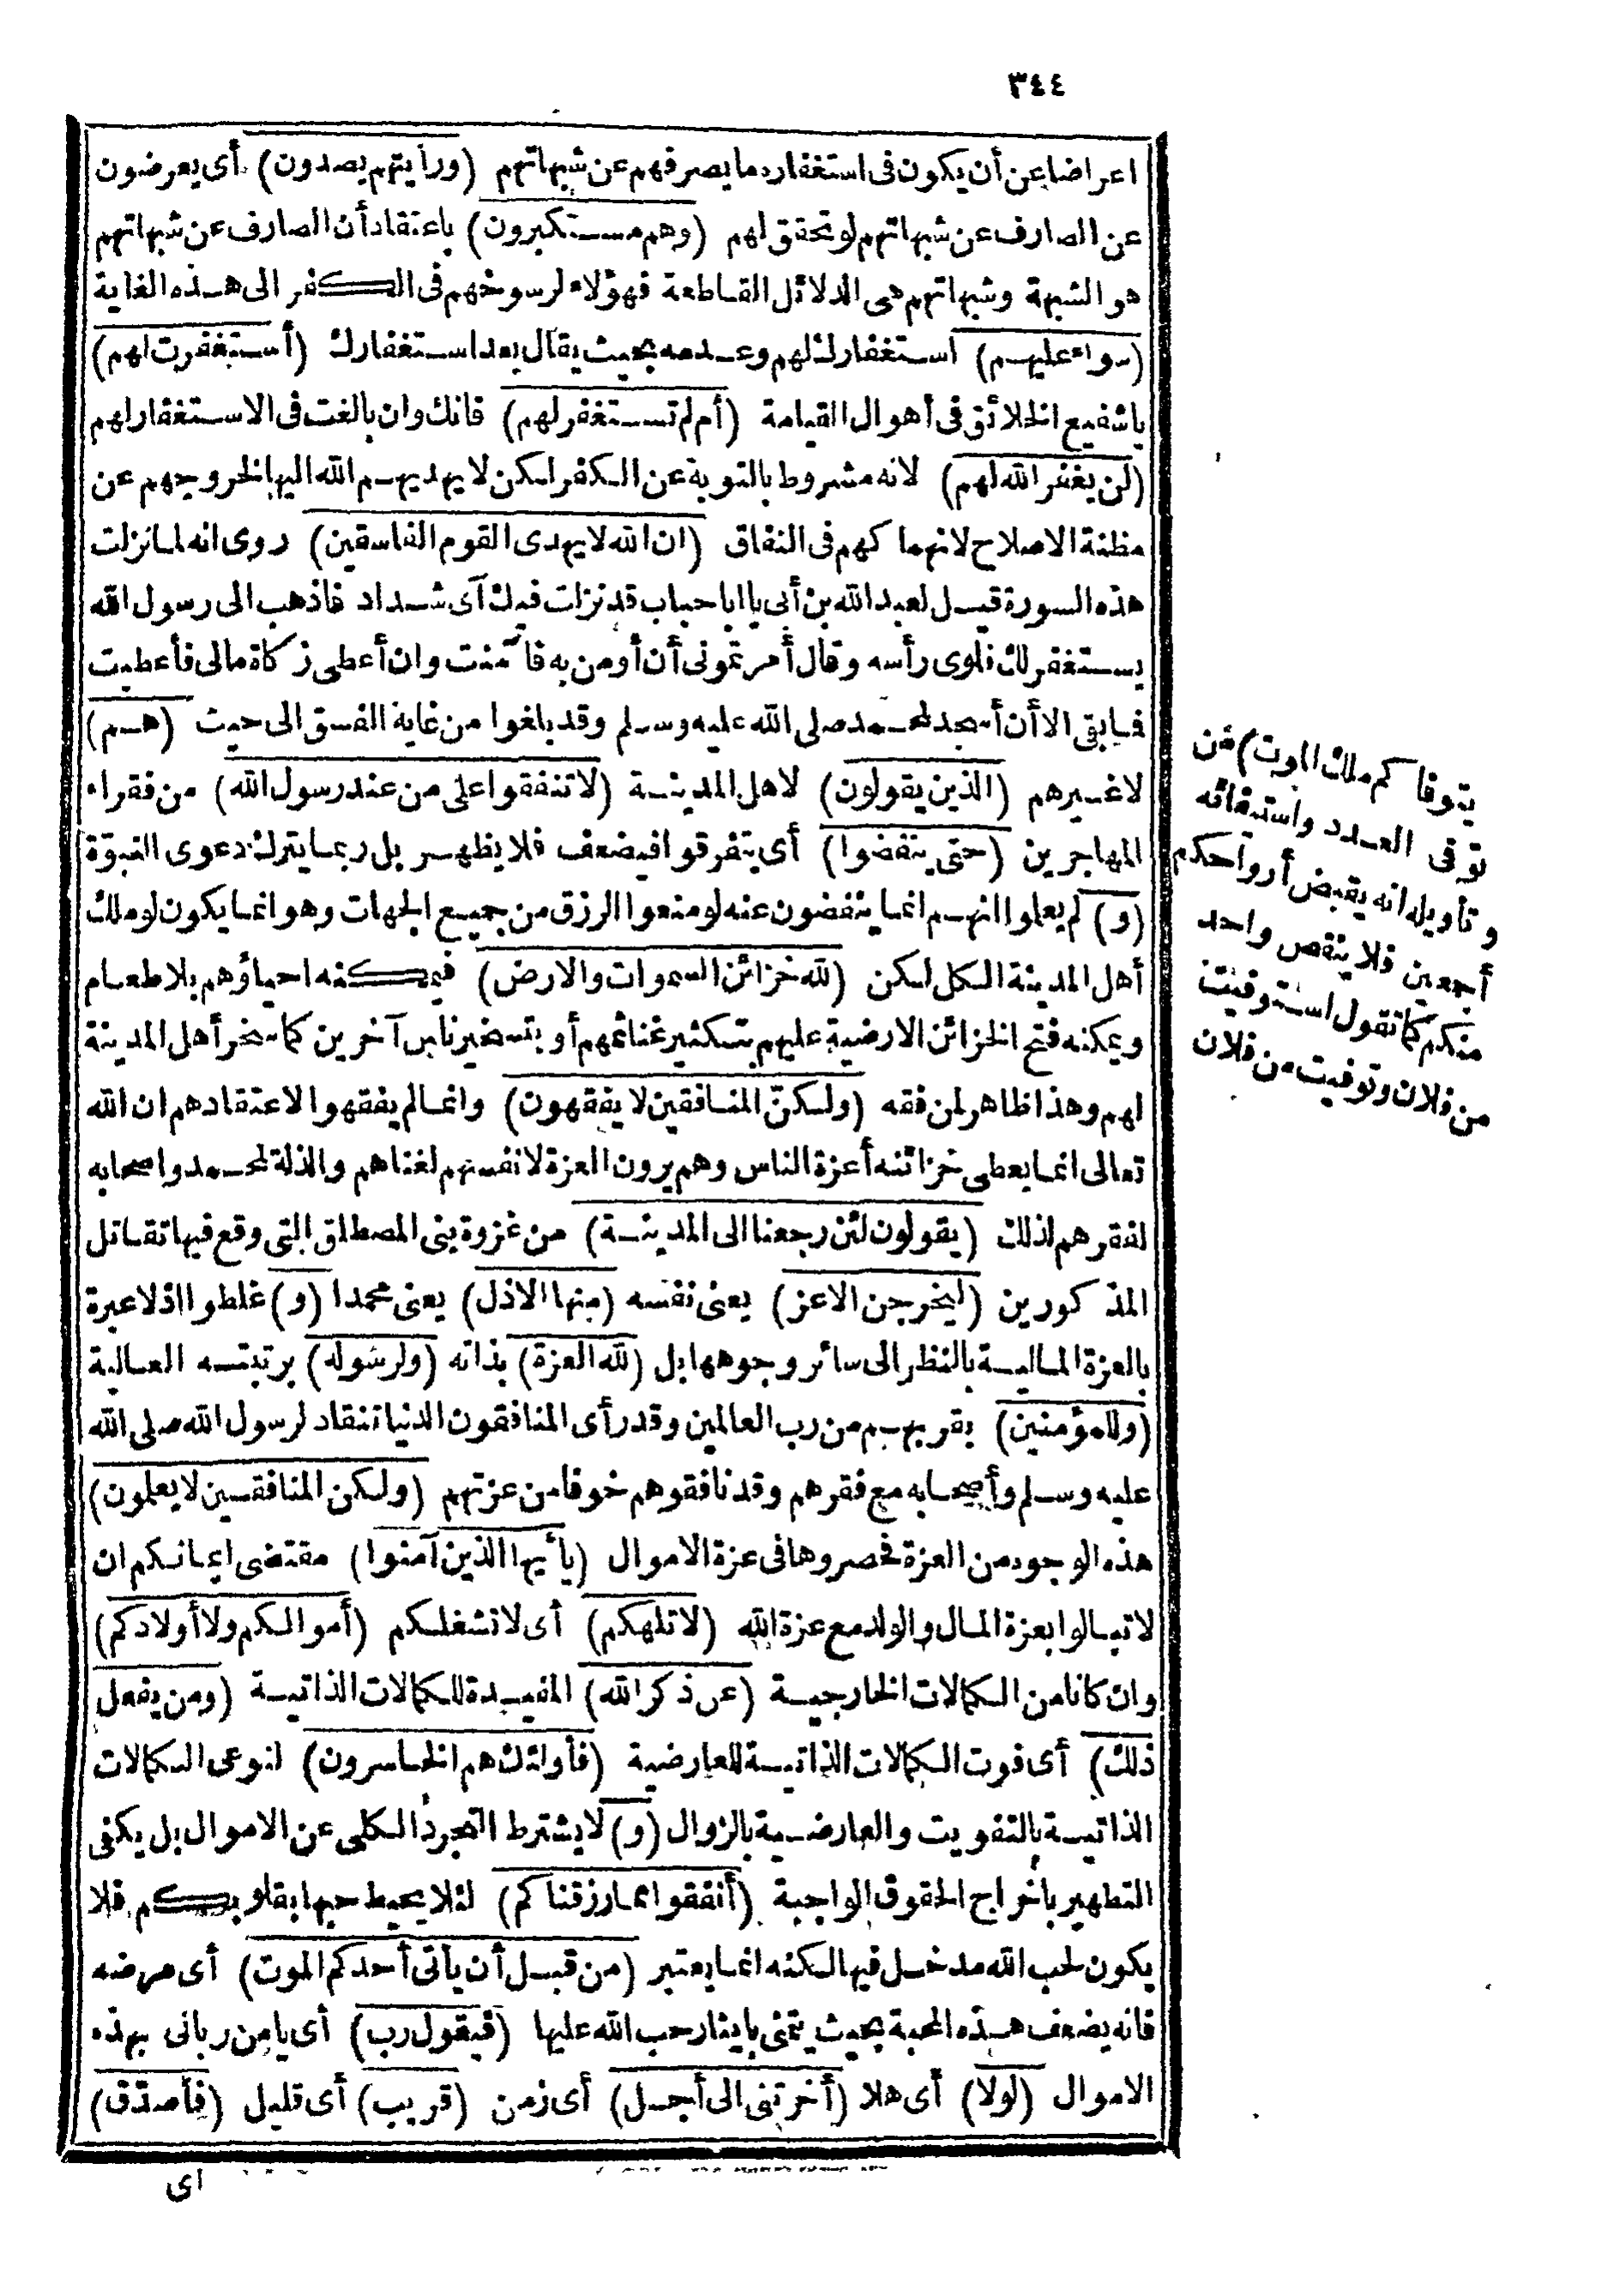 ٣٤٤
اعراضا عن أن يكون فى استغفاره ما يصرفهم عن شبهاتهم (ورأيتهم يصدون) أى يعرضون
عن الصارف عن شبهاتهم لو تحقق لهم (وهم مستكبرون) باعتقاد أن الصارف عن شبهاتهم
هو الشبهة وشبهاتهم هى الدلائل القاطعة فهؤلاء لرسوخهم فى الكفر الى هذه الغاية
(سواء عليهم) استغفارك لهم وعدمه بحيث يقال بعد استغفارك (أستغفرت لهم)
يا شفيع الخلائق فى أهوال القيامة (أم لم تستغفر لهم) فانك وان بالغت فى الاستغفار لهم
(لن يغفر الله لهم) لانه مشروط بالتوبة عن الكفر لكن لا يهديهم الله اليها لخروجهم عن
مظنة الاصلاح لانهماكهم فى النفاق (ان الله لا يهدى القوم الفاسقين) روى انه لما نزلت
هذه السورة قيل لعبد الله بن أبى يا ابا حباب قد نزلت فيك آى شداد فاذهب الى رسول الله
يستغفر لك فلوى رأسه وقال أمرتمونى أن أومن به فآمنت وان أعطى زكاة مالى فأعطيت
فما بقى الا أن أسجد لمحمد صلى الله عليه وسلم وقد بلغوا من غاية الفسق الى حيث (هم)
لا غيرهم (الذين يقولون) لاهل المدينة (لا تنفقوا على من عند رسول الله) من فقراء
المهاجرين (حتى ينفضوا) أى يتفرقوا فيضعف فلا يظهر بل ربما يترك دعوى النبوّة
(و) لم يعلموا انهم انما ينفضون عنه لو منعوا الرزق من جميع الجهات وهو انما يكون لو ملك
أهل المدينة الكل لكن (لله خزائن السموات والارض) فيمكنه احياؤهم بلا طعام
ويمكنه فتح الخزائن الارضية عليهم بتكثير غنائمهم أو بتسخير ناس آخرين كما سخر أهل المدينة
لهم وهذا ظاهر لمن فقه (ولكنّ المنافقين لا يفقهون) وانما لم يفقهوا لاعتقادهم ان الله
تعالى انما يعطى خزائنه أعزة الناس وهم يرون العزة لانفسهم لغناهم والذلة لمحمد واصحابه
لفقرهم لذلك (يقولون لئن رجعنا الى المدينة) من غزوة بنى المصطلق التى وقع فيها تقاتل
المذكورين (ليخرجن الاعز) يعنى نفسه (منها الاذل) يعنى محمدا (و) غلطوا اذ لا عبرة
بالعزة المالية بالنظر الى سائر وجوهها بل (لله العزة) بذاته (ولرسوله) برتبته العالية
(وللمؤمنين) بقربهم من رب العالمين وقد رأى المنافقون الدنيا تنقاد لرسول الله صلى الله
عليه وسلم وأصحابه مع فقرهم وقد نافقوهم خوفا من عزتهم (ولكن المنافقين لا يعلمون)
هذه الوجوه من العزة فحصروها فى عزة الاموال (يا أيها الذين آمنوا) مقتضى ايمانكم ان
لا تبالوا بعزة المال والولد مع عزة الله (لا تلهكم) أى لا تشغلكم (أموالكم ولا أولادكم)
وان كانا من الكمالات الخارجية (عن ذكر الله) المفيدة للكمالات الذاتية (ومن يفعل
ذلك) أى فوت الكمالات الذاتية للعارضية (فأولئك هم الخاسرون) لنوعى الكمالات
الذاتية بالتفويت والعارضية بالزوال (و) لا يشترط التجرد الكلى عن الاموال بل يكفى
التطهير باخراج الحقوق الواجبة (أنفقوا مما رزقناكم) لئلا يحيط حبها بقلوبكم فلا
يكون لحب الله مدخل فيها لكنه انما يعتبر (من قبل أن يأتى أحدكم الموت) أى مرضه
فانه يضعف هذه المحبة بحيث يتمنى بايثار حب الله عليها (فيقول رب) أى يا من ربانى بهذه
الاموال (لولا) أى هلا (أخرتنى الى أجل) أى زمن (قريب) أى قليل (فأصدّق)
أى
يتوفاكم ملك الموت) من
توفى العدد واستيفائه
وتأويله انه يقبض أرواحكم
أجمعين فلا ينقص واحد
منكم كما تقول استوفيت
من فلان وتوفيت من فلان